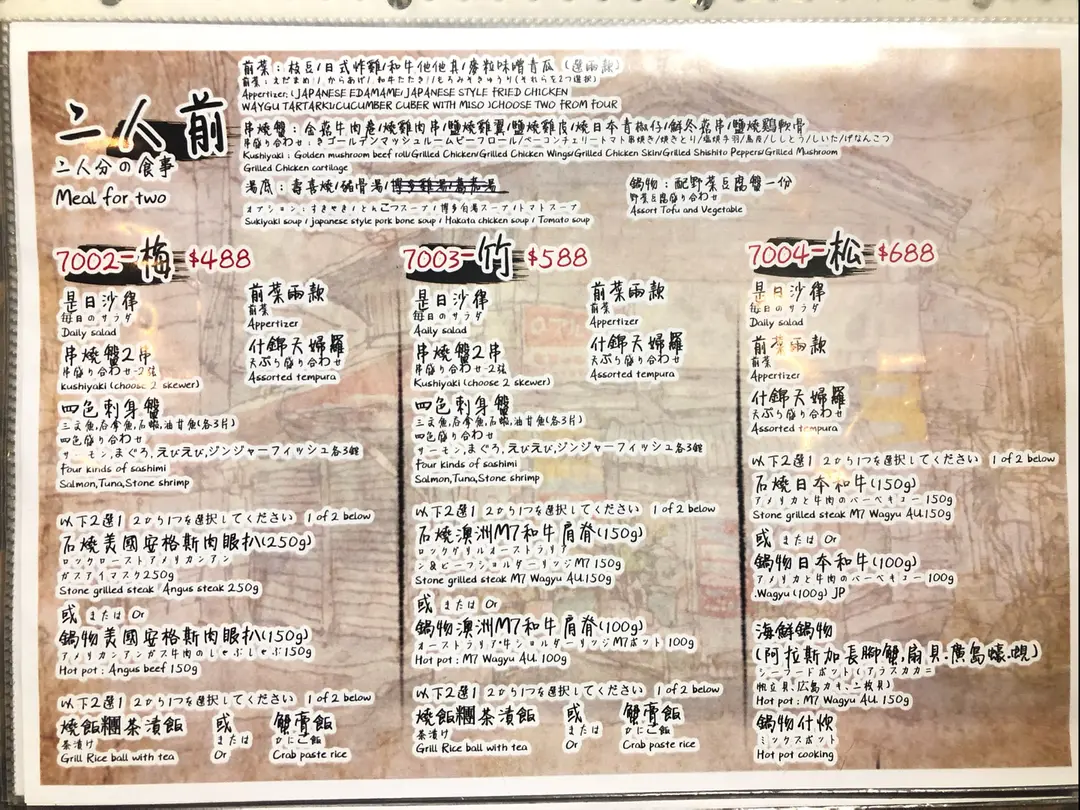 二人前
二人分の食事
Meal for two
前菜：枝豆/日式炸雞/和牛他他/麥粒味噌青瓜
前菜：えだまめ/からあげ/和牛たたき/もろみそきゅうり(それらを2つ選択)
Appertizer:(JAPANESE EDAMAME/JAPANESE STYLE FRIED CHICKEN
WAYGU TARTARKI/CUCUMBER CUBER WITH MISO )CHOOSE TWO FROM FOUR
串燒盤：金菇牛肉卷/燒雞肉串/鹽燒雞翼/鹽燒雞皮/燒日本青椒仔/鮮冬菇串/鹽燒鷄軟骨
Kushiyaki : Golden mushroom beef roll/Grilled Chicken/Grilled Chicken Wings/Grilled Chicken Skin/Grilled Shishito Peppers/Grilled Mushroom
Grilled Chicken cartilage
湯底：壽喜燒/豬骨湯/
オプション：すきやき/とんこつスープ/博多白湯スープ/トマトスープ
Sukiyaki soup / japanese style pork bone soup / Hakata chicken soup / Tomato soup
鍋物：配野菜豆腐盤一份
野菜豆腐盛り合わせ
Assort Tofu and Vegetable
7002-梅 $488
是日沙律
毎日のサラダ
Daily salad
串燒盤2串
串盛り合わせ-2
kushiyaki (choose 2 skewer)
四色刺身盤
三文魚,吞拿魚,石蝦,油甘魚(各3片)
四色盛り合わせ
サーモン,まぐろ,えびえび,ジンジャーフィッシュ各3
Four kinds of sashimi
Salmon,Tuna,Stone shrimp
前菜兩款
前菜
Appertizer
什錦天婦羅
天ぷら盛り合わせ
Assorted tempura
以下2選1 2から1つを選択してください 1 of 2 below
石燒美國安格斯肉眼扒(250g)
ロックローストアメリカンアン
ガスアイマスク250g
Stone grilled steak Angus steak 250g
或 または Or
鍋物美國安格斯肉眼扒(150g)
アメリカンアンガス牛肉のしゃぶしゃぶ150g
Hot pot : Angus beef 150g
以下2選1 2から1つを選択してください 1 of 2 below
燒飯糰茶漬飯
茶漬け
Grill Rice ball with tea
或
または
Or
蟹膏飯
かにご飯
Crab paste rice
7003-竹 $588
是日沙律
毎日のサラダ
Aaily salad
串燒盤2串
串盛り合わせ-2
Kushiyaki (choose 2 skewer)
四色刺身盤
三文魚,吞拿魚,石蝦,油甘魚(各3片)
四色盛り合わせ
サーモン,まぐろ,えびえび,ジンジャーフィッシュ各3
Four kinds of sashimi
Salmon,Tuna,Stone shrimp
前菜兩款
前菜
Appertizer
什錦天婦羅
天ぷら盛り合わせ
Assorted tempura
以下2選1 2から1つを選択してください 1 of 2 below
石燒澳洲M7和牛肩脊(150g)
ロックグリルオーストラリア
ン&ビーフショルダーリッジM7 150g
Stone grilled steak M7 Wagyu AU.150g
或 または Or
鍋物澳洲M7和牛肩脊(100g)
オーストラリア牛ショルダーリッジM7ポット 100g
Hot pot : M7 Wagyu AU. 100g
以下2選1 2から1つを選択してください 1 of 2 below
燒飯糰茶漬飯
茶漬け
Grill Rice ball with tea
或
または
Or
蟹膏飯
かにご飯
Crab paste rice
7004-松 $688
是日沙律
毎日のサラダ
Daily salad
前菜兩款
前菜
Appertizer
什錦天婦羅
天ぷら盛り合わせ
Assorted tempura
以下2選1 2から1つを選択してください 1 of 2 below
石燒日本和牛(150g)
アメリカと牛肉のバーベキュー 150g
Stone grilled steak M7 Wagyu AU.150g
或 または Or
鍋物日本和牛(100g)
アメリカと牛肉のバーベキュー 100g
.Wagyu (100g) JP
海鮮鍋物
(阿拉斯加長脚蟹,扇貝.廣島蠔.蜆)
シーフードポット(アラスカカニ
帆立貝、広島カキ、二枚貝)
Hot pot : M7 Wagyu AU. 150g
鍋物什炊
ミックスポット
Hot pot cooking